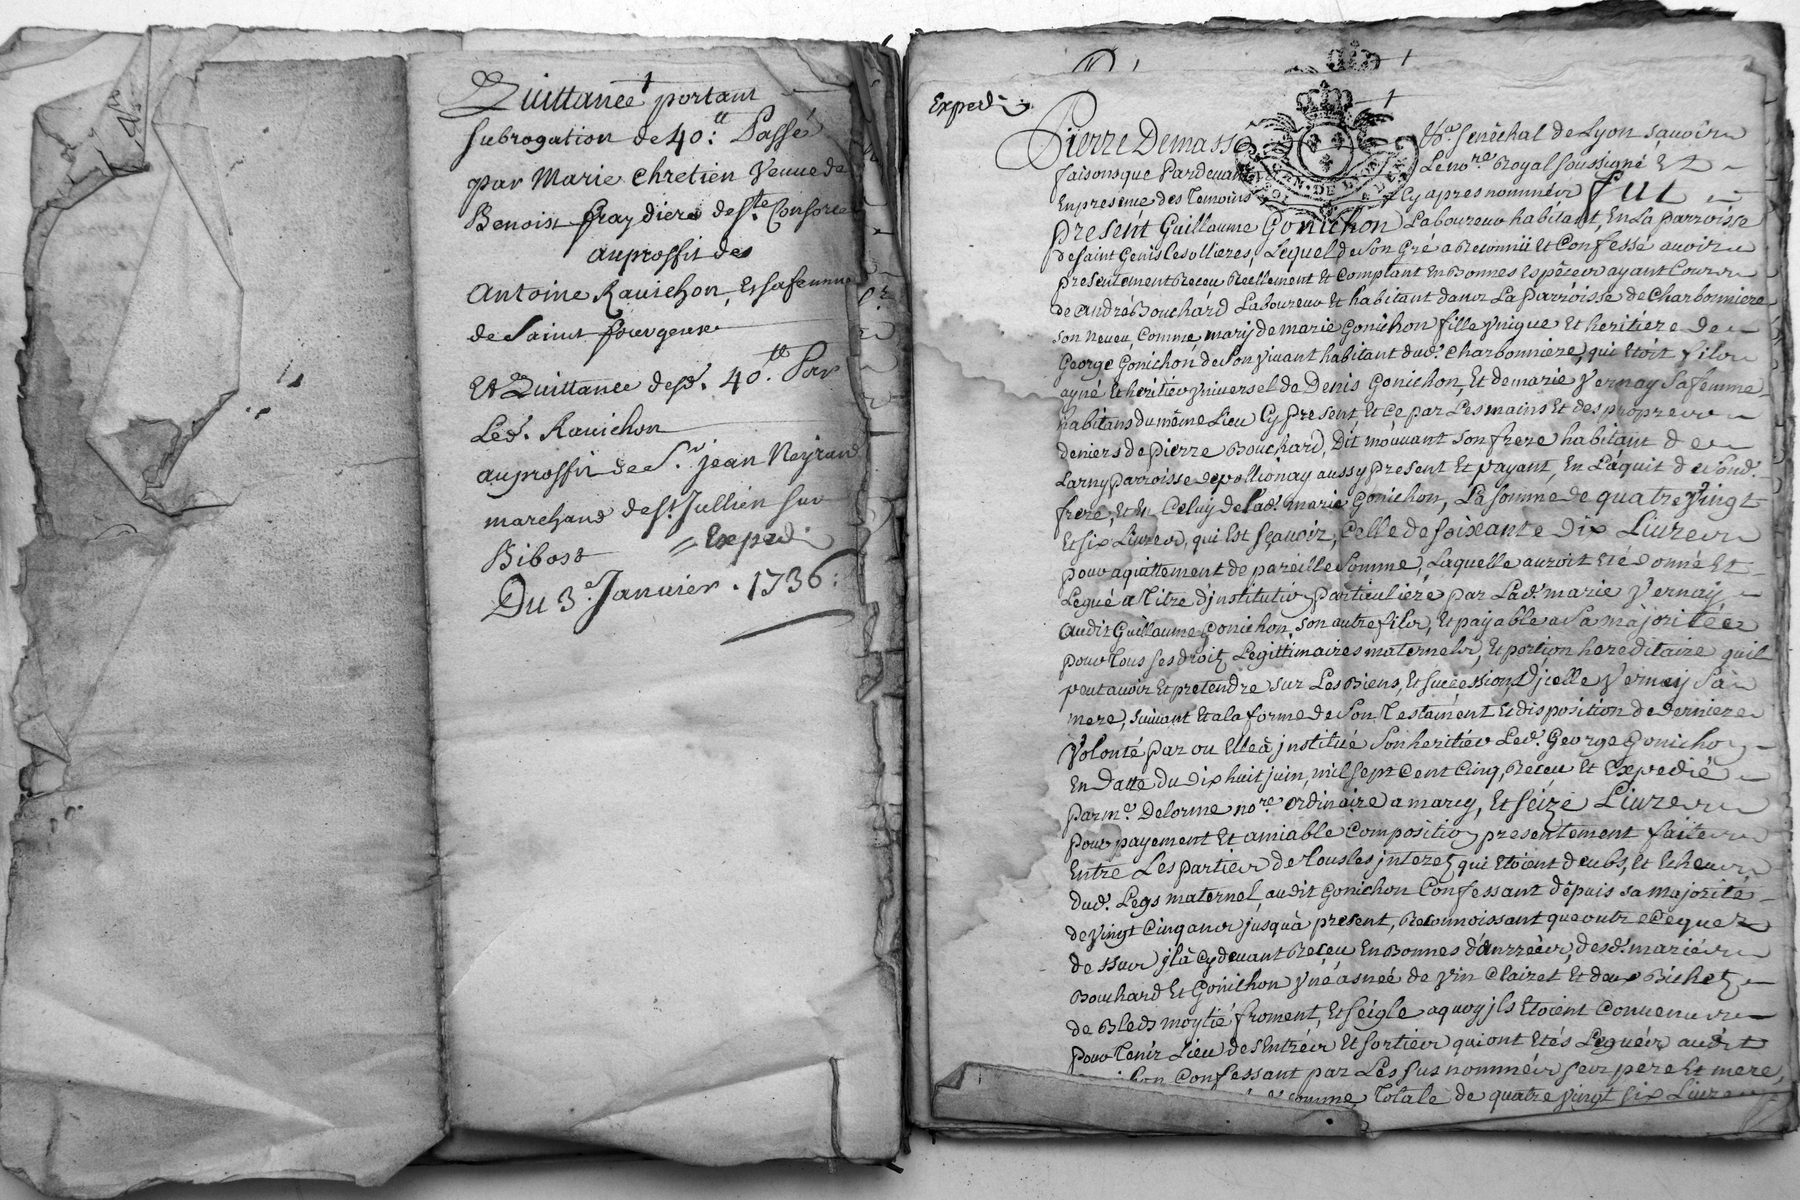 Quittance portant
subrogation de 40:tt Passé
par Marie Chretien Veuve de
Benoist fraydiere de Ste. Consorce
au proffit des
Antoine Ravichon, et sa femme
de Saint fourgeux
Et Quittance desd. 40.tt Par
Led. Ravichon
au proffit de Sr. jean Neyrand
marchand de St. Jullien sur
Bibost = Expedi
Du 3e. Janvier . 1736:
Expedi
Pierre Demasso Sénéchal de Lyon sçavoir
faisons que Pardevant Le nore. Royal soussigné Et
En presence des temoins Cy apres nommés fut
présent Guillaume Gonichon Laboureur habitant, En La parroisse
de saint Genis Les ollieres, Lequel de son Gré a Reconnü Et Confessé avoir
presentement Receu Reellement Et Comptant En Bonnes Espéces ayant Cours
de andré Bouchard Laboureur Et habitant dans La parroisse de Charbonniere
son neveu, Comme mary de marie Gonichon fille Unique Et heritiere de
George Gonichon de Son vivant habitant dud. Charbonniere, qui étoit fils
ayné Et heritier Universel de Denis Gonichon, Et de marie Vernay Sa femme
habitans du même Lieu Cy present, Et Ce par Les mains Et des propres
deniers de pierre Bouchard, dit mouvant son frere habitant de
Larny parroisse de pollionay aussy present Et payant, En L'aquit de sond.
frere, Et En Celuy de Lad. marie Gonichon, La somme de quatre Vingt
Et six Livres, qui Est sçavoir, Celle de soixante Dix Livres
pour aquittement de pareille Somme, Laquelle auroit été donné Et
Legué a Titre d'institution particuliere par Lad. marie Vernay
audit Guillaume Gonichon, son autre fils, Et payable a Sa majorité
pour Tous ses droits Legittimaires maternels, Et portion hereditaire quil
peut avoir Et pretendre sur Les Biens, Et succession D'icelle Vernay Sa
mere, suivant Et a la forme de Son Testament Et disposition de derniere
Volonté par ou Elle à institué Son heritier Led. George Gonichon
En Datte du Dix huit juin, mil sept Cent Cinq, Receu Et Expedié
Par me. Delorme nore. ordinaire a marcy, Et seize Livres
Pour payement Et amiable Composition presentement faite
Entre Les parties de Tous les interets qui Etoient deubs, Et Echeus
dud. Legs maternel, audit Gonichon Confessant dépuis sa majorité
de Vingt Cinq ans jusqu'à présent, Reconnoissant que outre Ce que
dessus il à Cy devant Receu En Bonnes d'anrrées, desd. mariés
Bouchard Et Gonichon Une asnée de Vin Clairet Et deux Bichets
de Bleds moytié froment, Et seigle a quoy ils Etoient Convenus
pour Tenir Lieu des Entrées Et sorties qui ont Etés Legués audit
Confessant par Les sus nommés ses pere Et mere,
somme Totale de quatre Vingt six Livres